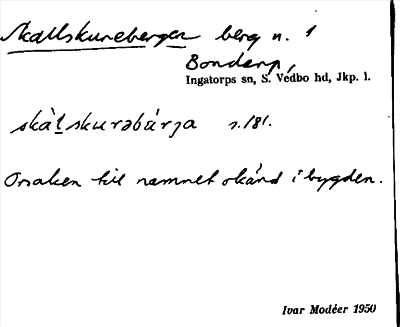 Skallskureberget berg n. 1
Bonderp,
Ingatorps sn, S. Vedbo hd, Jkp. l.
s. 181.
Orsaken till namnet okänd i bygden.
Ivar Modéer 1950